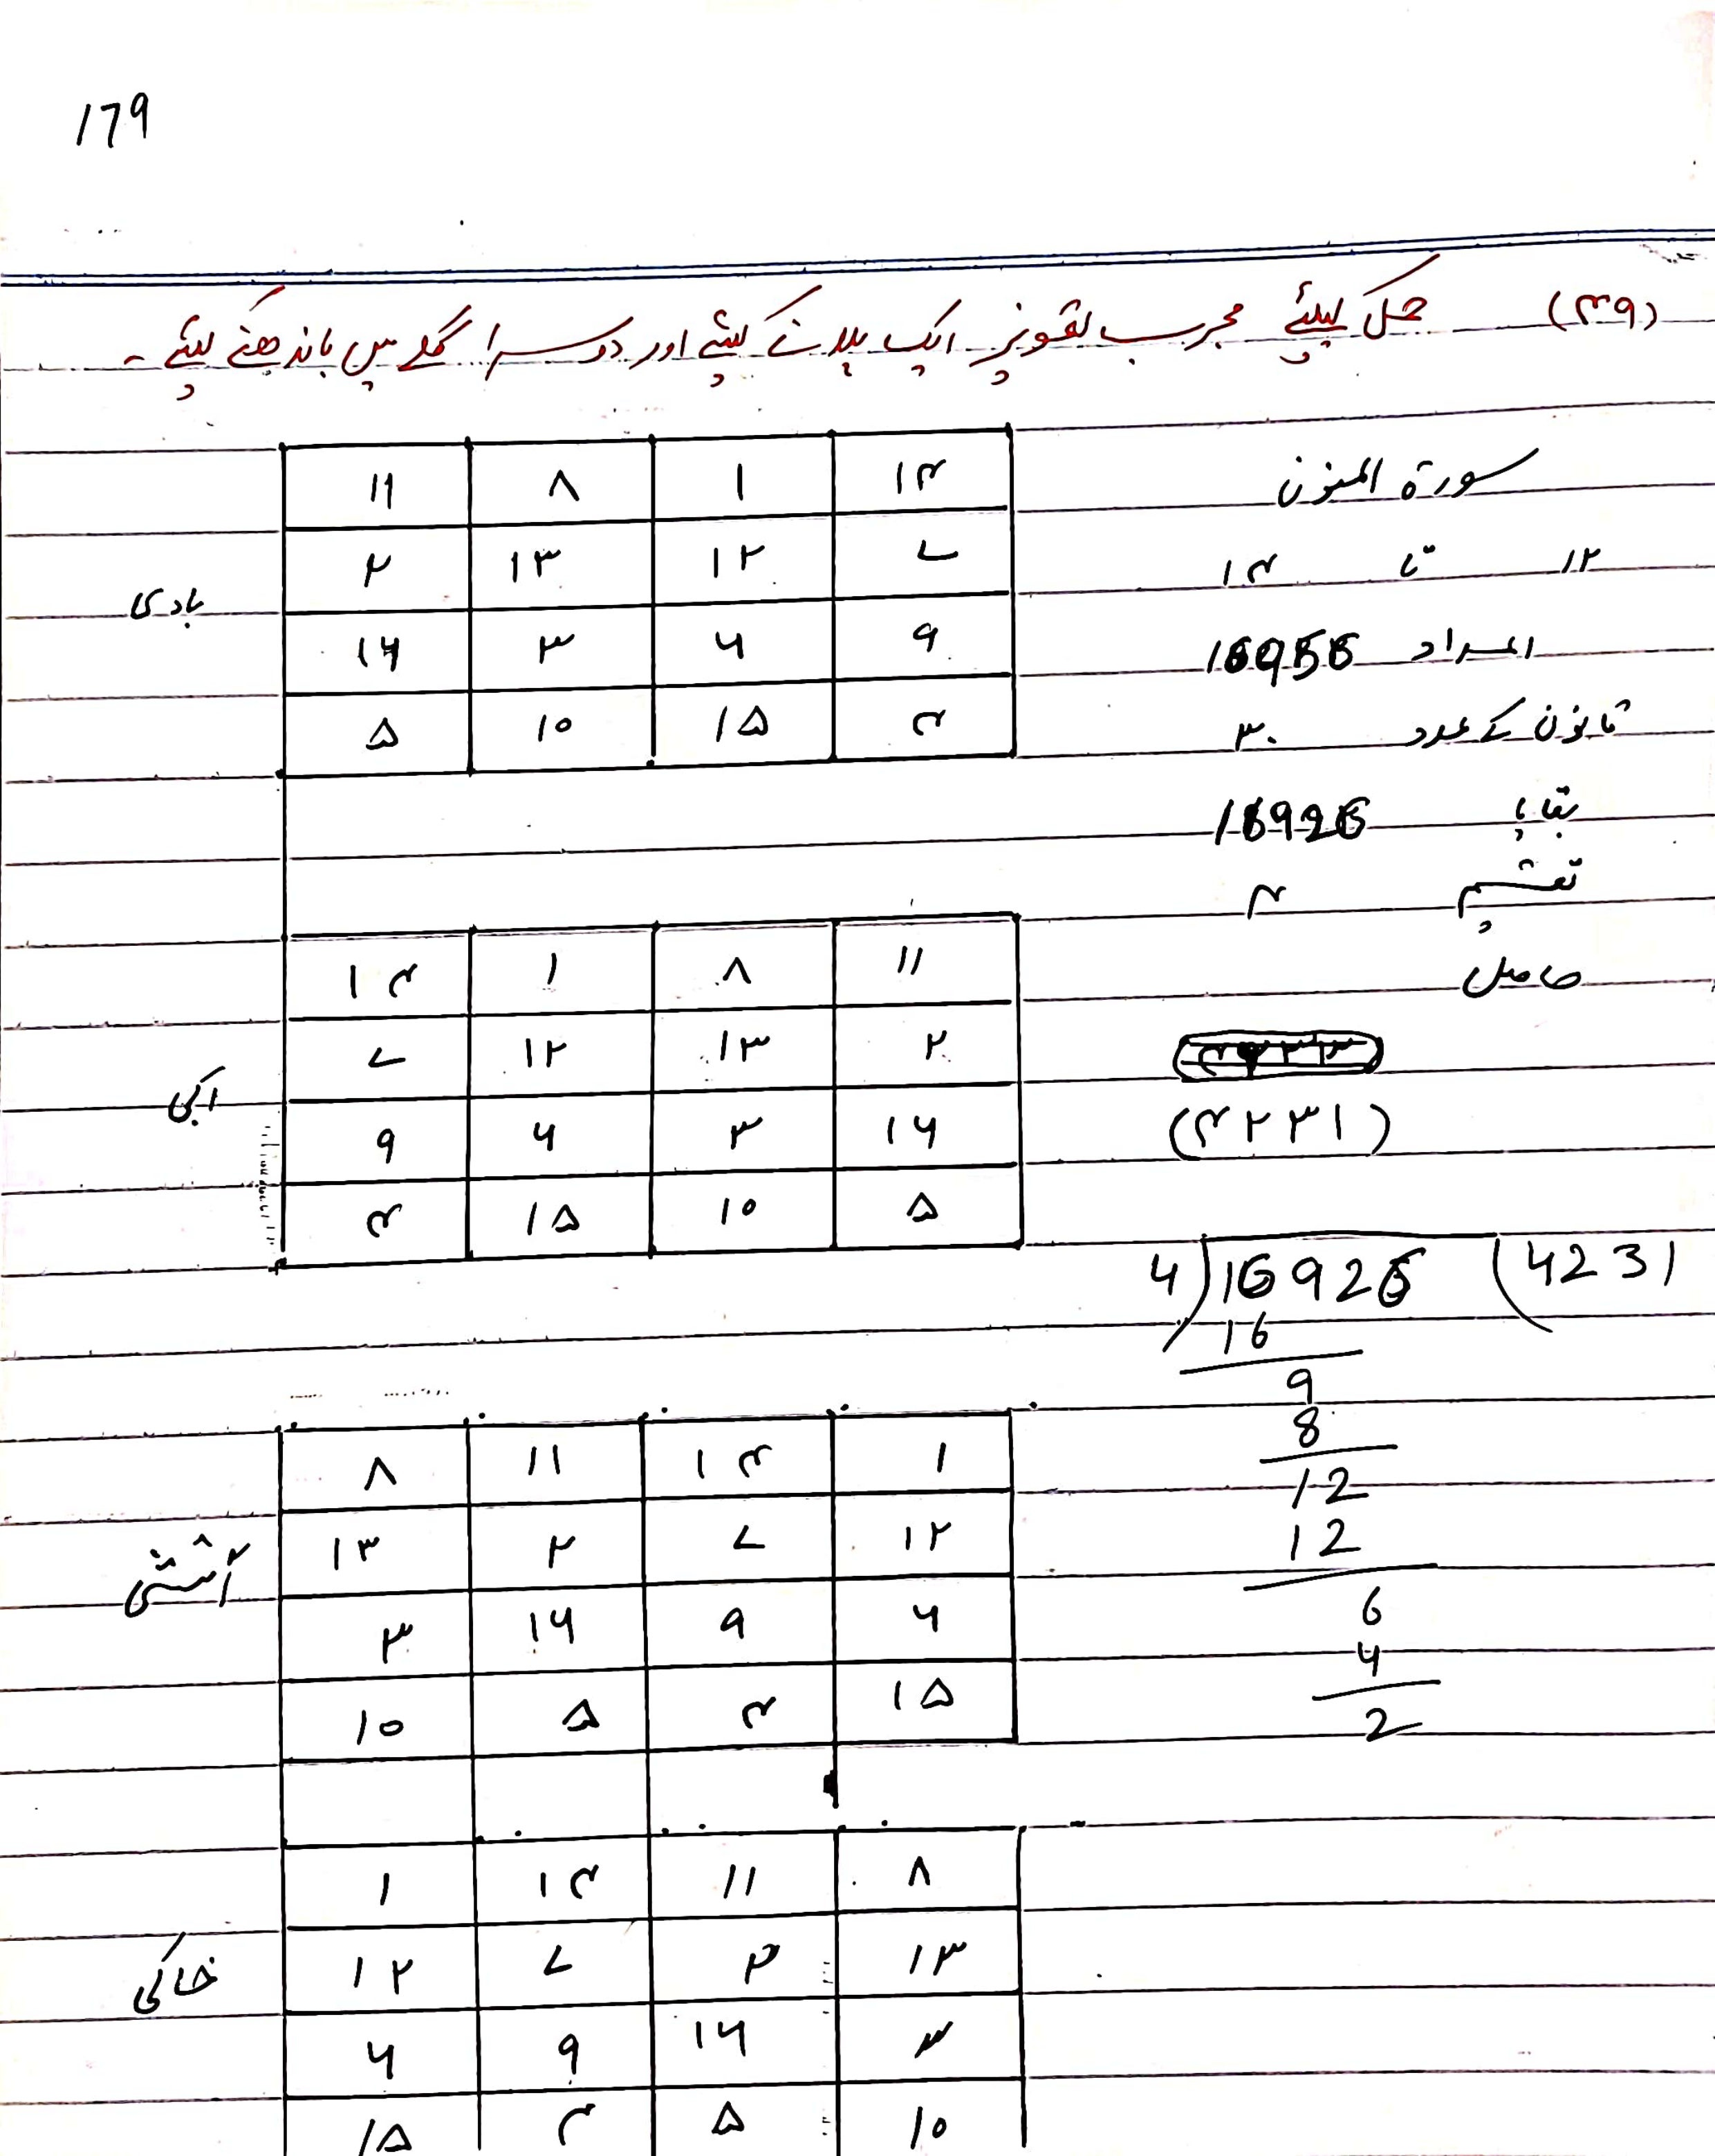 179
(۴۹) حمل کیلئے مجرب تعویز ایک پلانے کیلئے اور دوسرا گلے میں باندھنے کیلئے ۔
سورة المنون
۱۲ تا ۱۴
اعداد 16956
قانون کے عدد ۳۰
بقایا 16926
تقسیم ۴
حاصل
(۴۲۳۱)
4)16926(4231
16
9
8
12
12
6
4
2
بادی
۱۱ ۸ ۱ ۱۴
۲ ۱۳ ۱۲ ۷
۱۶ ۳ ۶ ۹
۵ ۱۰ ۱۵ ۴
آبی
۱۴ ۱ ۸ ۱۱
۷ ۱۲ ۱۳ ۲
۹ ۶ ۳ ۱۶
۴ ۱۵ ۱۰ ۵
آتشی
۸ ۱۱ ۱۴ ۱
۱۳ ۲ ۷ ۱۲
۳ ۱۶ ۹ ۶
۱۰ ۵ ۴ ۱۵
خاکی
۱ ۱۴ ۱۱ ۸
۱۲ ۷ ۲ ۱۳
۶ ۹ ۱۶ ۳
۱۵ ۴ ۵ ۱۰